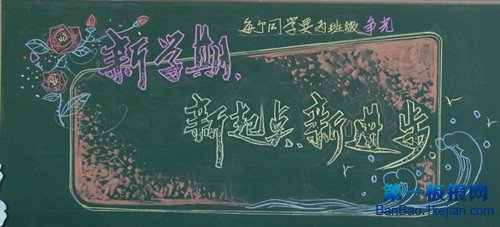 每个同学要为班级争光
新学期、
新起点、新进步
第一板报网
BanBao.1kejian.com